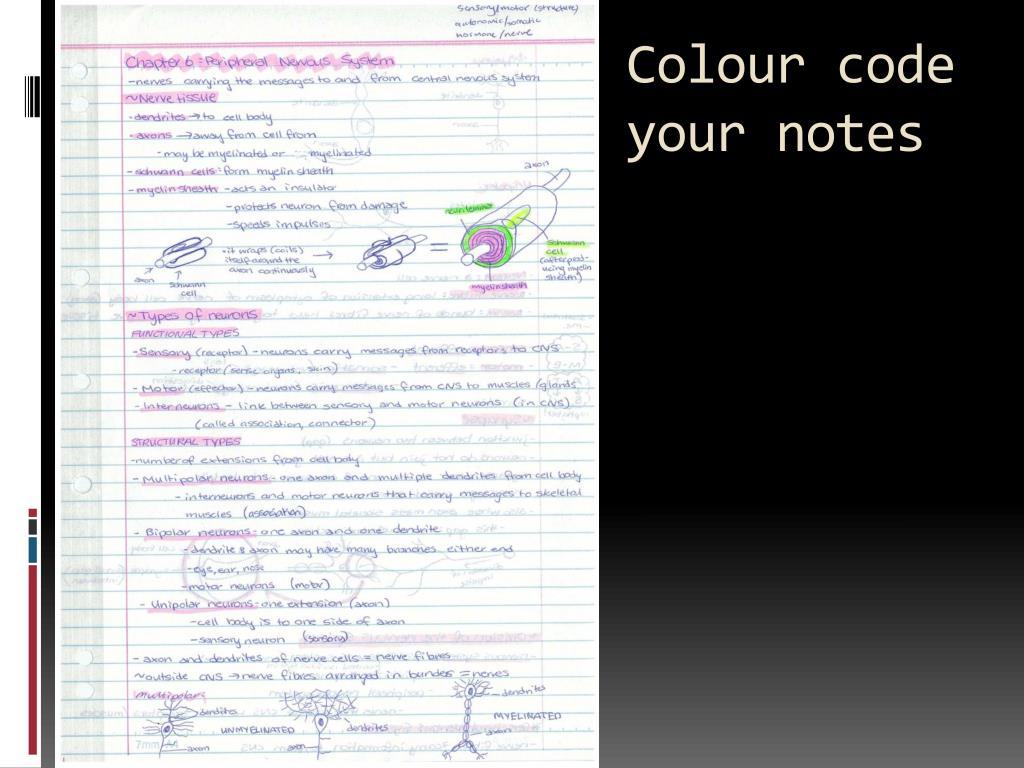 sensory/motor (structure)
autonomic/somatic
hormone/nerve
Colour code
your notes
Chapter 6: Peripheral Nervous System
-nerves carrying the messages to and from central nervous system
~Nerve tissue
-dendrites → to cell body
-axons → away from cell from
-may be myelinated or myelinated
-schwann cells: form myelin sheath
-myelin sheath -acts an insulator
-protects neuron from damage
-speeds impulses
axon
neurilemma
-it wraps (coils)
itself around the
axon continuously
→
=
schwann
cell
(after prod-
ucing myelin
sheath)
axon
schwann
cell
myelin sheath
~Types of neurons
FUNCTIONAL TYPES
-Sensory (receptor) -neurons carry messages from receptors to CNS
-receptor (sense organs, skin)
-Motor (effector) -neurons carry messages from CNS to muscles/glands
-Interneurons - link between sensory and motor neurons (in CNS)
(called association, connector)
STRUCTURAL TYPES
-number of extensions from cell body
-Multipolar neurons- one axon and multiple dendrites from cell body
-interneurons and motor neurons that carry messages to skeletal
muscles (association)
-Bipolar neurons: one axon and one dendrite
-dendrite & axon may have many branches either end
-eye, ear, nose
-motor neurons (motor)
-Unipolar neurons: one extension (axon)
-cell body is to one side of axon
-sensory neuron (sensory)
-axon and dendrites of nerve cells = nerve fibres
~outside CNS → nerve fibres arranged in bundes = nerves
Multipolar:
dendrites
dendrites
MYELINATED
UNMYELINATED
dendrites
axon
axon
axon
7mm